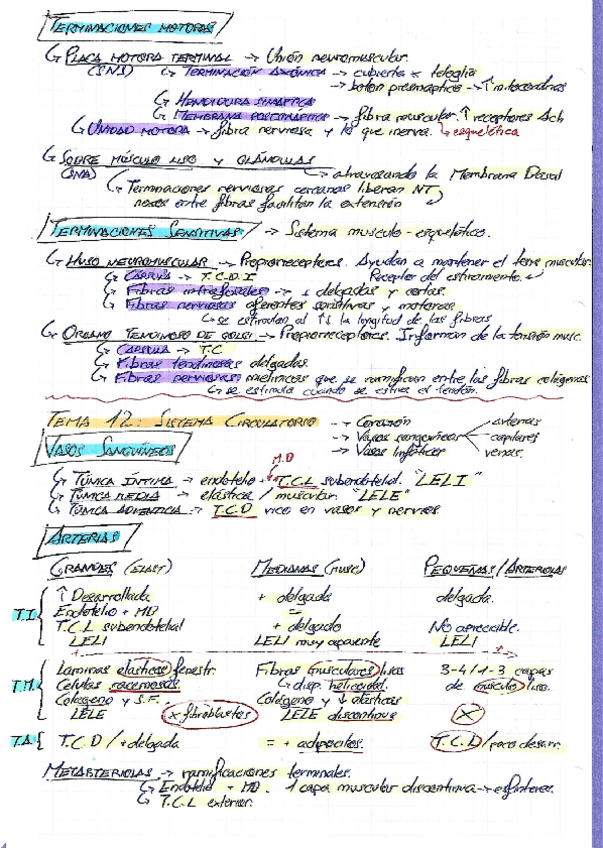 TERMINACIONES MOTORAS
↳ PLACA MOTORA TERMINAL → Unión neuromuscular.
(SNS) ↳ TERMINACIÓN AXÓNICA → cubierta x teloglia
→ botón presináptico → ↑ mitocondrias
↳ HENDIDURA SINÁPTICA
↳ MEMBRANA POSTSINÁPTICA → fibra muscular. ↑ receptores Ach
↳ UNIDAD MOTORA → fibra nerviosa y lo que inerva. ↳ esquelética
↳ SOBRE MÚSCULO LISO Y GLÁNDULAS
(SNA) → atravesando la Membrana Basal
↳ Terminaciones nerviosas cercanas liberan NT
nexos entre fibras facilitan la extensión
TERMINACIONES SENSITIVAS → Sistema musculo-esquelético.
↳ HUSO NEUROMUSCULAR → Propiorreceptores. Ayudan a mantener el tono muscular.
↳ CÁPSULA → T.C.D.I Receptor del estiramiento.
↳ Fibras intrafusales → + delgadas y cortas.
↳ Fibras nerviosas aferentes sensitivas y motoras
↳ se estimulan al ↑↓ la longitud de las fibras
↳ ÓRGANO TENDINOSO DE GOLGI → Propiorreceptores. Informan de la tensión musc.
↳ CÁPSULA → T.C
↳ Fibras tendinosas delgadas.
↳ Fibras nerviosas mielínicas que se ramifican entre las fibras colágenas
↳ se estimula cuando se estira el tendón.
TEMA 12: SISTEMA CIRCULATORIO → Corazón
→ Vasos sanguíneos arterias capilares venas.
→ Vasos linfáticos
VASOS SANGUÍNEOS
M.D
↳ TÚNICA ÍNTIMA → endotelio + T.C.L subendotelial. "LELI"
↳ TÚNICA MEDIA → elástica / muscular. "LELE"
↳ TÚNICA ADVENTICIA → T.C.D rico en vasos y nervios
ARTERIAS
GRANDES (ELAST) MEDIANAS (musc) PEQUEÑAS / ARTERIOLAS
↑ Desarrollada + delgada delgada.
T.I. Endotelio + MD =
T.C.L subendotelial + delgado No apreciable.
LELI LELI muy aparente LELI
Laminas elasticas fenestr. Fibras musculares lisas 3-4 / 1-3 capas
T.M. Células racemosas. ↳ disp. helicoidal. de musculo liso.
Colágeno y S.F. Colágeno y ↓ elásticas
LELE x fibroblastos LELE discontinua X
T.A. T.C.D / + delgada = + adipocitos. T.C.L / poco desarr.
METARTERIOLAS → ramificaciones terminales.
↳ Endotelio + MD. 1 capa muscular discontinua → esfínteres.
↳ T.C.L exterior.